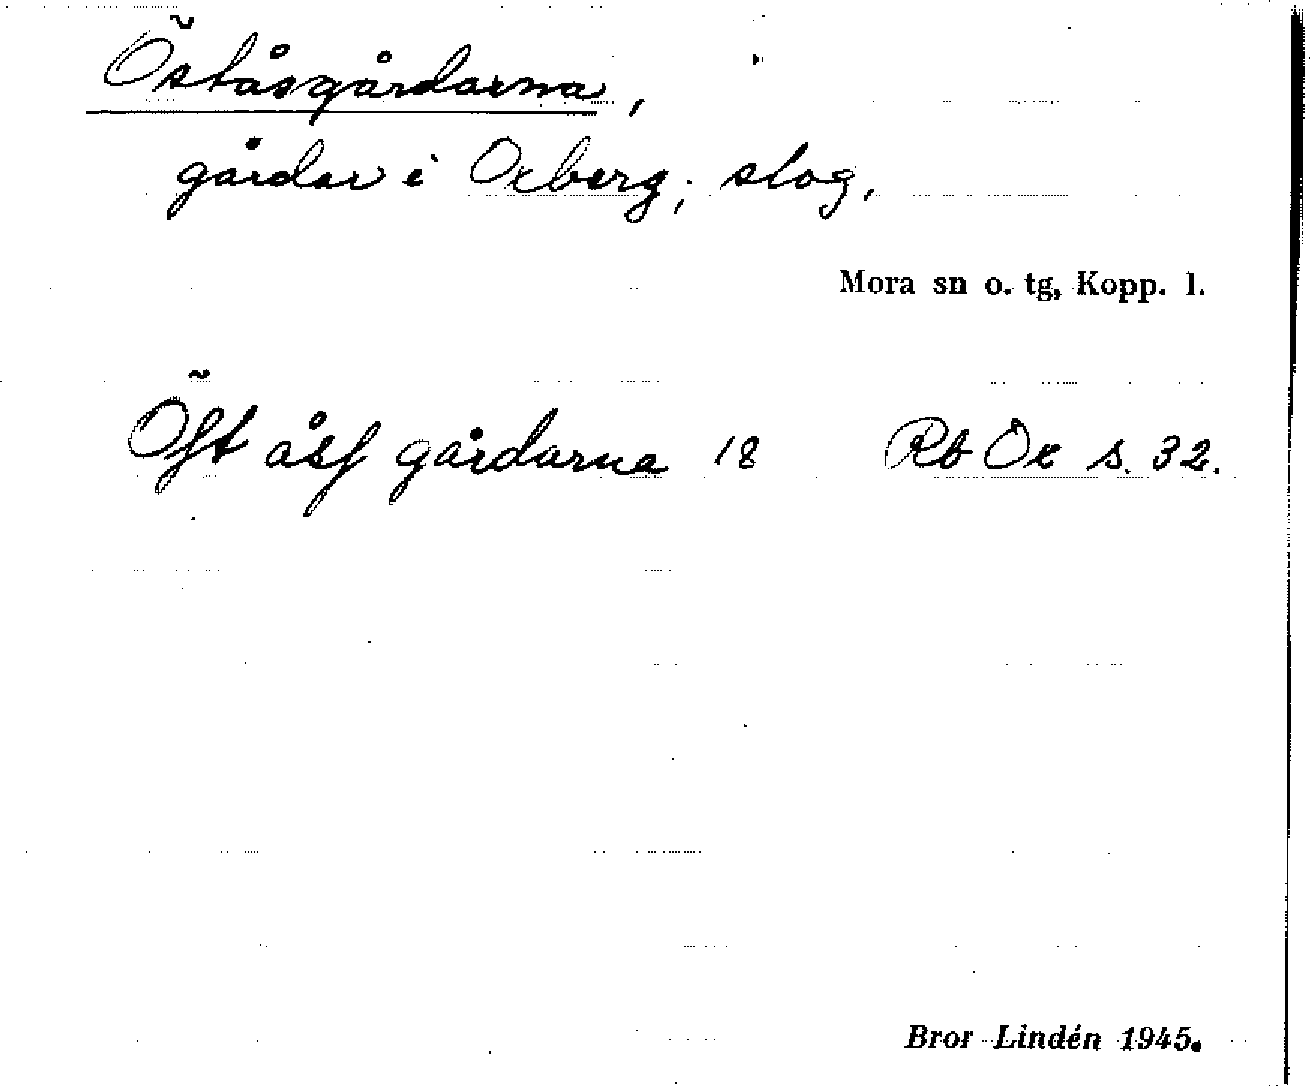 Öståsgårdarna,
gårdar i Oxberg; slog.
Mora sn o. tg, Kopp. l.
Öſt åsſ gårdarna 18 Rb Ox s. 32.
Bror Lindén 1945.